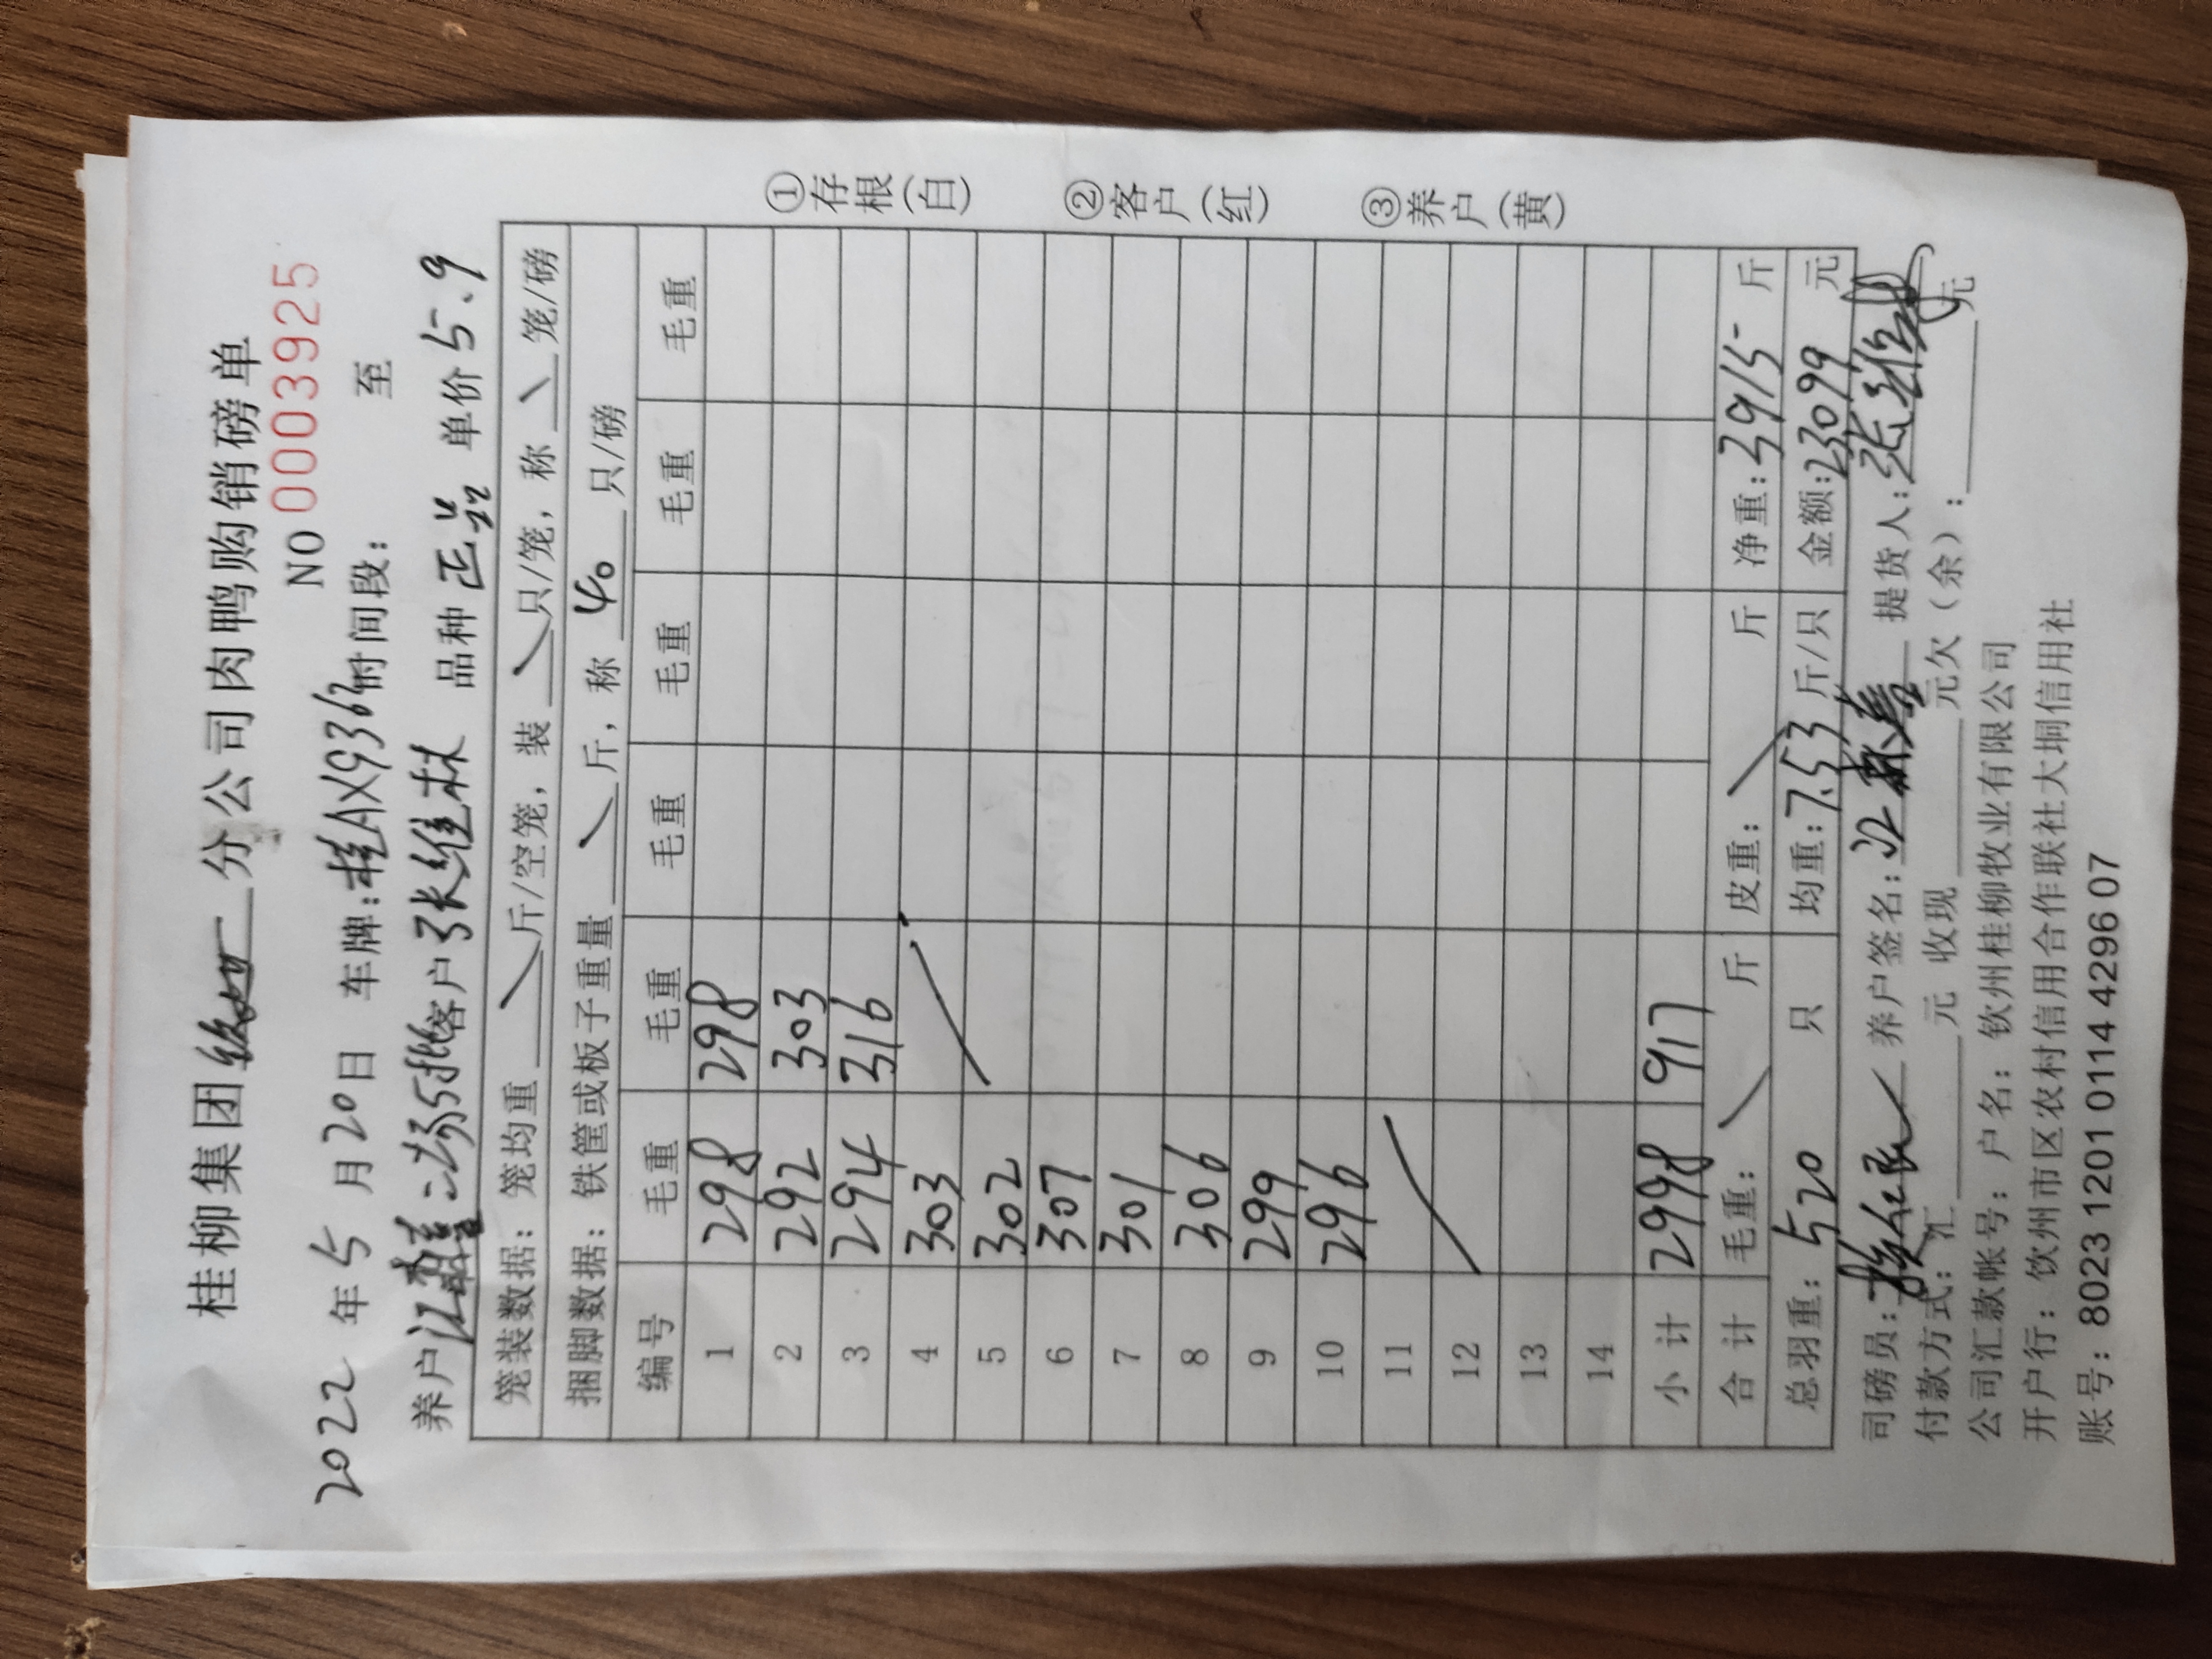 桂柳集团 分公司肉鸭购销磅单
NO 0003925
2022 年 5 月 20 日 车牌:桂AX9362时间段: 至
养户 江 二场5批客户 张维林 品种 正品 单价 5.9
笼装数据:笼均重 斤/空笼,装 只/笼,称 笼/磅
捆脚数据:铁筐或板子重量 斤,称 40 只/磅
编号 毛重 毛重 毛重 毛重 毛重 毛重
1 298 298
2 292 303
3 294 316
4 303
5 302
6 307
7 301
8 306
9 299
10 296
11
12
13
14
小计 2998 917
合计 毛重: 斤 皮重: 斤 净重:3915 斤
总羽重:520 只 均重:7.53 斤/只 金额:23099 元
司磅员: 养户签名: 提货人:张维林
付款方式:汇 元 收现 元欠(余): 元
公司汇款帐号:户名:钦州桂柳牧业有限公司
开户行:钦州市区农村信用合作联社大垌信用社
账号:8023 1201 0114 4296 07
①存根(白) ②客户(红) ③养户(黄)